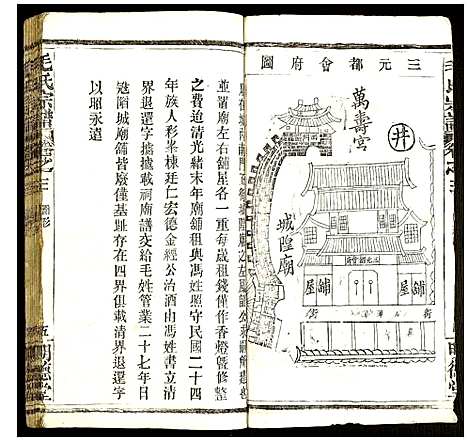 三元都會府圖
萬壽宮
井
城隍廟
舖屋
舖屋
街
並謂廟左右舖屋各一重每歲租錢僅作香燈暨修整
之費迨清光緒末年廟舖租與馮姓照守民國二十四
年族人彩峯棟廷仁宏德金經公治酒由馮姓書立清
界退還字據據載祠廟譜交給毛姓管業二十七年日
寇陷城廟舖皆廢僅基址存在四界俱載清界退還字
以昭永遠
毛氏宗譜
圖形
五
明德堂